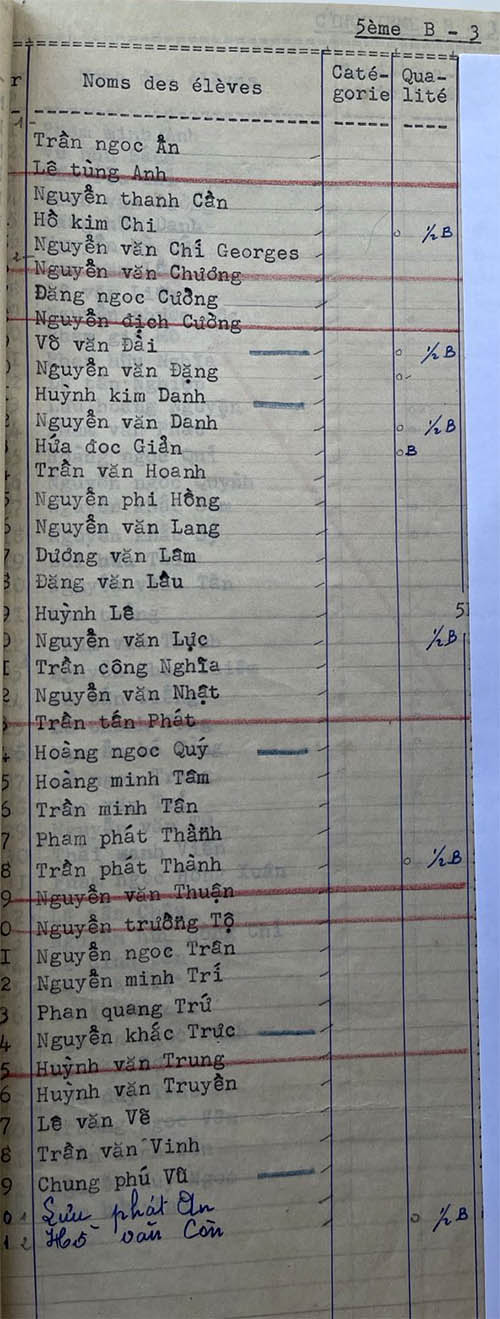 5ème B - 3
r Noms des élèves Caté- Qua-
gorie lité
Trần ngọc Ẩn
Lê tùng Anh
Nguyễn thanh Cần
Hồ kim Chi ½ B
2 Nguyễn văn Chí Georges
Nguyễn văn Chương
Đăng ngọc Cường
Nguyễn địch Cường
Võ văn Đài ½ B
0 Nguyễn văn Đặng
I Huỳnh kim Danh
2 Nguyễn văn Danh ½ B
3 Hứa đoc Giản B
4 Trần văn Hoanh
5 Nguyễn phi Hồng
6 Nguyễn văn Lang
7 Dương văn Lâm
8 Đăng văn Lâu
9 Huỳnh Lê 5
0 Nguyễn văn Lực ½ B
I Trần công Nghĩa
2 Nguyễn văn Nhật
3 Trần tấn Phát
4 Hoàng ngọc Quý
5 Hoàng minh Tâm
6 Trần minh Tân
7 Pham phát Thành
8 Trần phát Thành ½ B
9 Nguyễn văn Thuận
0 Nguyễn trường Tộ
I Nguyễn ngoc Trân
2 Nguyễn minh Trí
3 Phan quang Trứ
4 Nguyễn khắc Trực
5 Huỳnh văn Trung
6 Huỳnh văn Truyền
7 Lê văn Vẽ
8 Trần văn Vinh
9 Chung phú Vũ
0 1 Lưu phát Ẩn ½ B
1 2 Hồ văn Còn